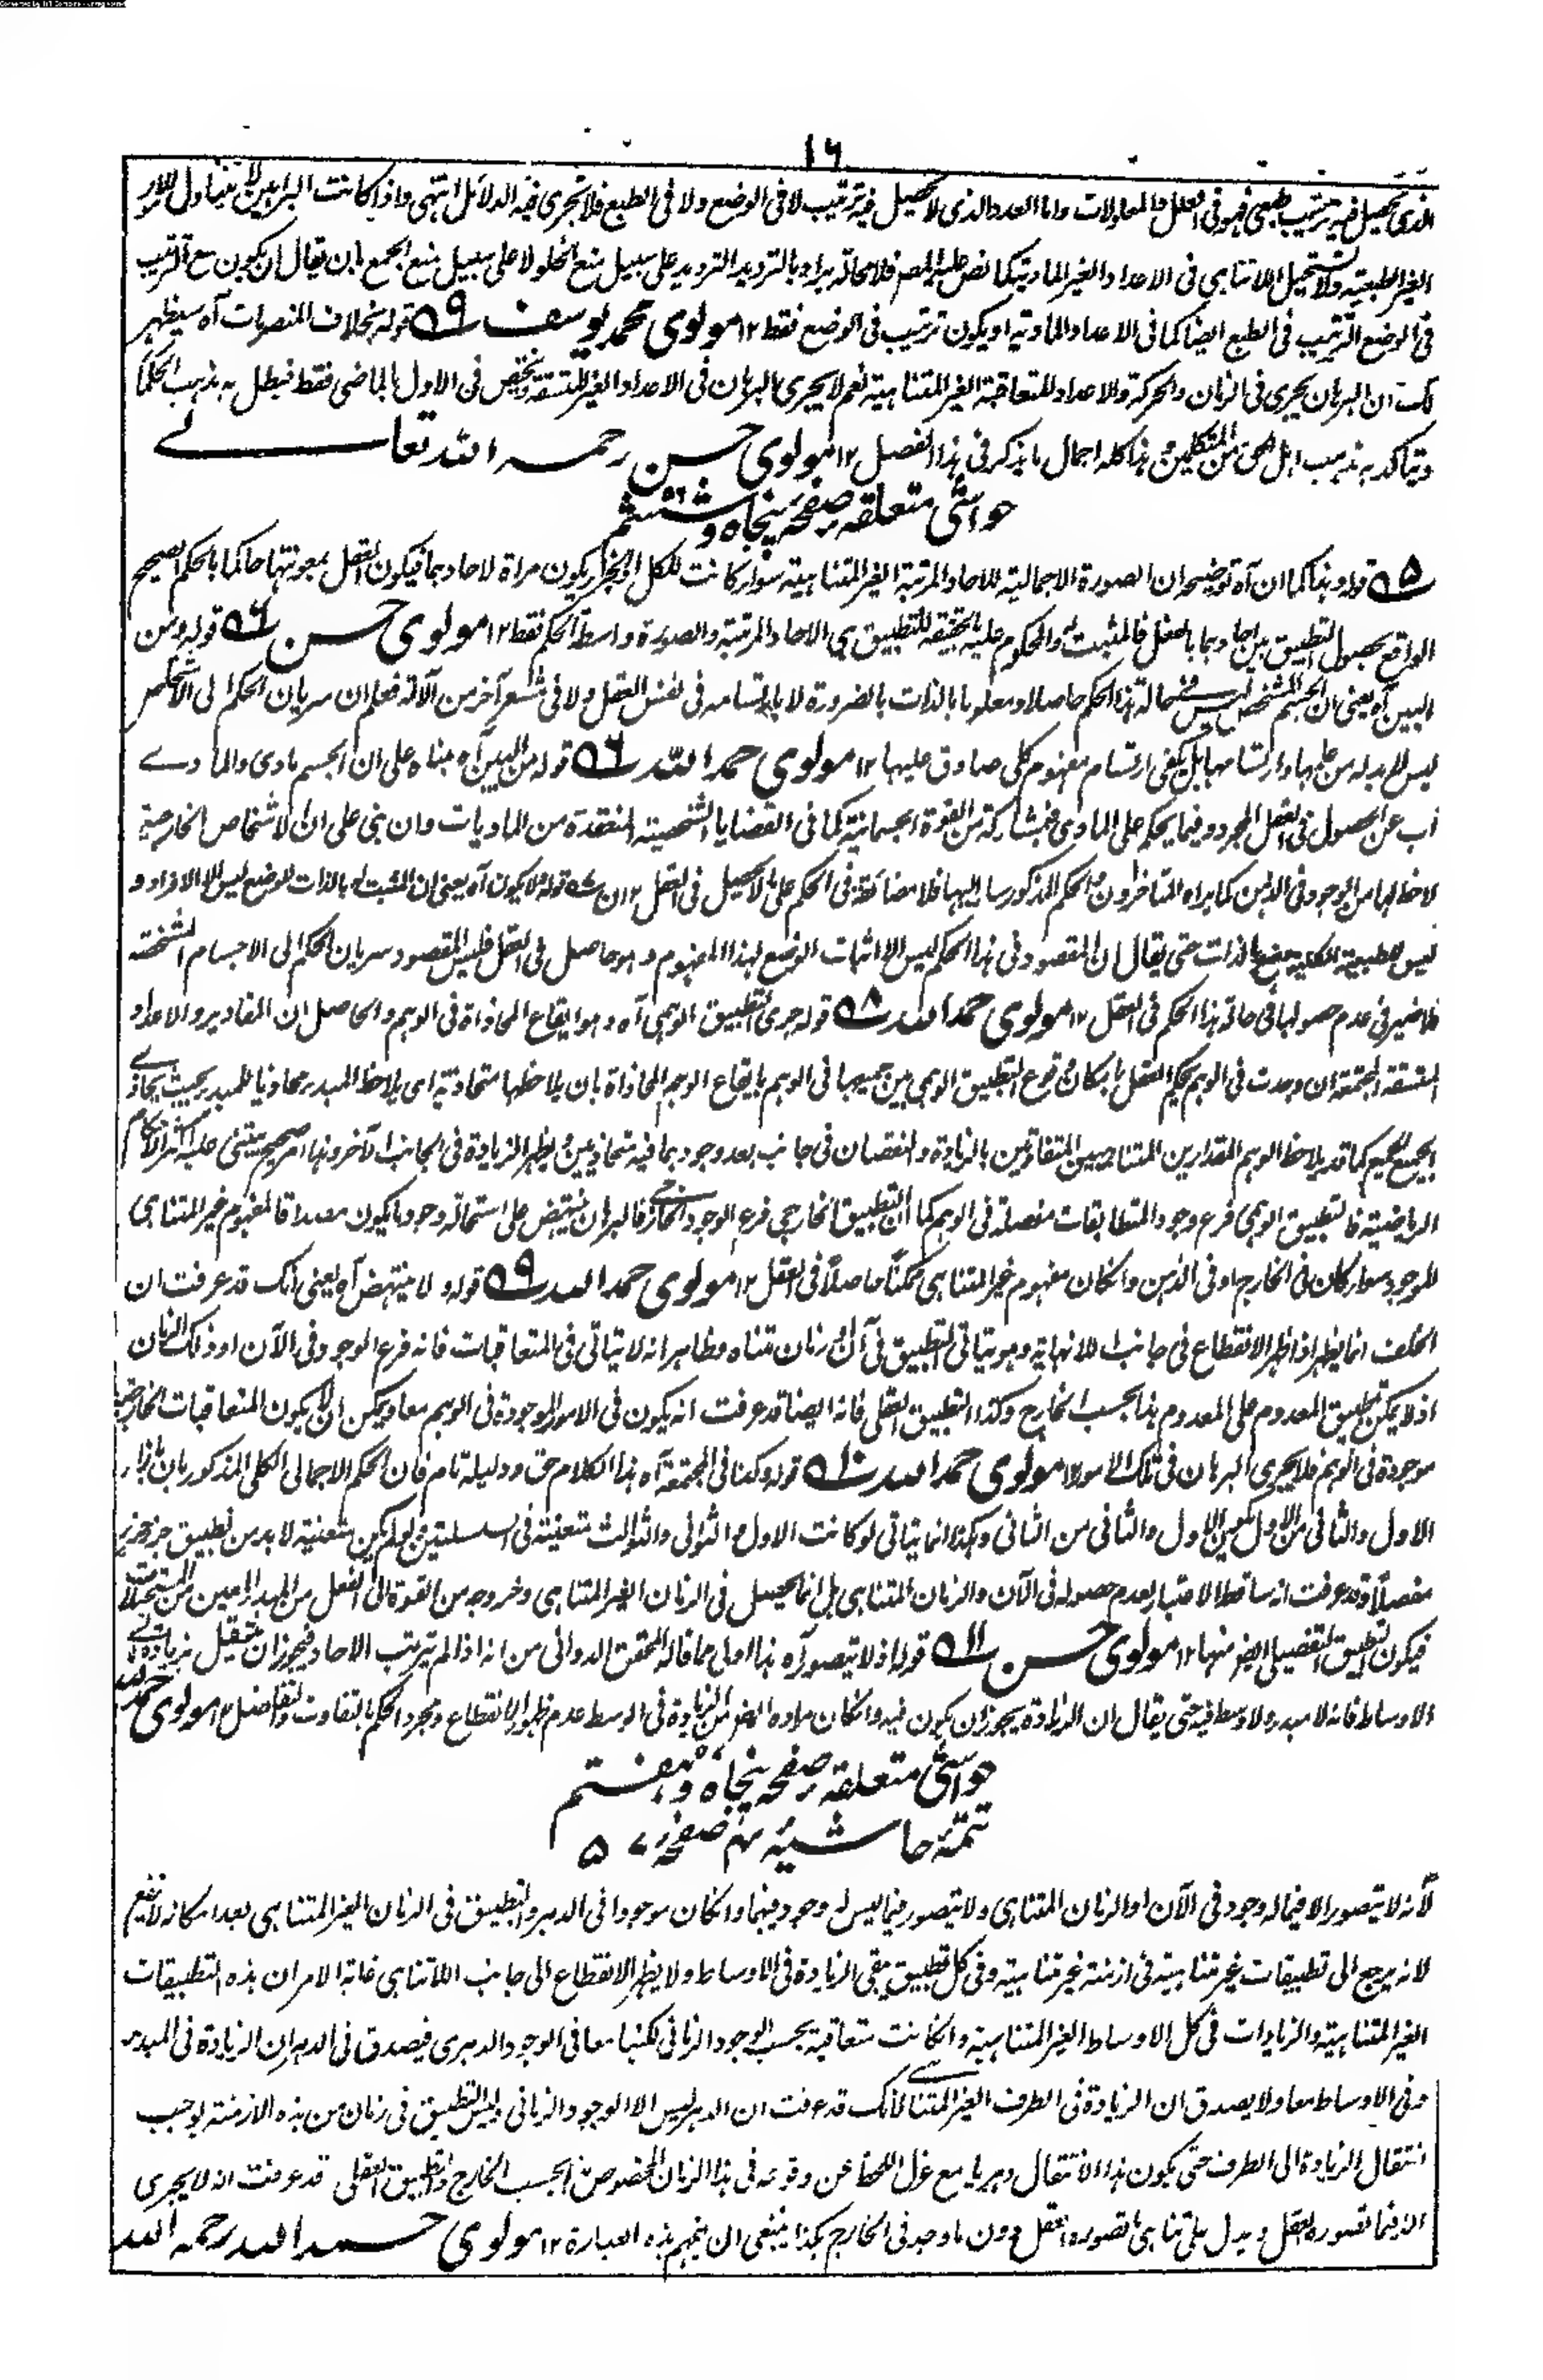 ١٦
الذي يحصل فيه ترتيب طبعي فهو في العلل والمعلولات واما العدد الذي لا يحصل فيه ترتيب لا في الوضع ولا في الطبع فلا تجري فيه الدلائل انتهى واذا كانت البراهين لا تتناول الامور
الغير الطبعية ولا تحيل اللاتناهي في الاعداد الغير المادية كما نص عليه المص فلا محالة يراد بالترديد الترديد على سبيل منع الخلو لا على سبيل منع الجمع بان يقال ان يكون مع الترتيب
في الوضع الترتيب في الطبع ايضا كما في الاعداد المادية او يكون ترتيب في الوضع فقط ١٢ مولوي محمد يوسف ٩ قوله بخلاف المنصرمات آه سيظهر
لك ان البرهان يجري في الزمان والحركة والاعداد المتعاقبة الغير المتناهية نعم لا يجري البرهان في الاعداد الغير المتسقة ويختص في الاول بالماضي فقط فيبطل به مذهب الحكما
ويتأكد به مذهب اهل الحق من المتكلمين هذا كله اجمال ما يذكر في هذا الفصل ١٢ مولوي حسن رحمه الله تعالے
حواشي متعلقه بر صفحه پنجاه و ششم ٥٦
٥ قوله وهذا كما ان آه توضيحه ان الصورة الاجمالية للاحاد المرتبة الغير المتناهية سواء كانت للكل او الجزء يكون مرآة لاحادها فيكون العقل بمعونتها حاكما بالحكم الصحيح
الواقع بحصول التطبيق بين احادهما بالفعل فالمثبت له والمحكوم عليه بالحقيقة للتطبيق هي الاحاد المرتبة والصورة واسطة الحكم فقط ١٢ مولوي حسن ٦ قوله ومن
البين آه يعني ان الجسم المتشخص ليس في حالة هذا الحكم حاصلا ومعلوما بالذات بالضرورة لا بارتسامه في نفس العقل ولا في مشعر آخر من آلاته فعلم ان سريان الحكم الى الاشخاص
ليس لا بد له من علمها وارتسامها بل يكفي ارتسام مفهوم كلي صادق عليها ١٢ مولوي حمد الله ٦ قوله من البين آه مبناه على ان الجسم مادي والمادے
آب عن الحصول في العقل المجرد وفيما يحكم على المادي فبمشاركة من القوة الجسمانية كما في القضايا الشخصية المنعقدة من الماديات وان بني على ان الاشخاص الخارجية
لا حظ لها من الوجود في الذهن كما يراه المتاخرون والحكم المذكور سار اليها فلا مضائقة في الحكم على ما لا يحصل في العقل ١٢ ٧ قوله لا يكون آه يعني ان المثبت له بالذات للوضع ليس الا الافراد و
ليس للطبيعة الكلية وضع بالذات حتى يقال ان المقصود في هذا الحكم ليس الا اثبات الوضع لهذا المفهوم وهو حاصل في العقل فليس المقصود سريان الحكم الى الاجسام المشخصة
فلا ضير في عدم حصولها في حالة هذا الحكم في العقل ١٢ مولوي حمد الله ٨ قوله جرى التطبيق الوهمي آه وهو ايقاع المحاذاة في الوهم والحاصل ان المقادير والاعداد
المتسقة المجتمعة ان وجدت في الوهم يحكم العقل بامكان وقوع التطبيق الوهمي بين جميعها في الوهم بايقاع الوهم المحاذاة بان يلاحظها متحاذية اي يلاحظ المبدء محاذيا للمبدء بحيث يحاذے
الجميع الجميع كما قد يلاحظ الوهم المقدارين المتناهيين المتفاوتين بالزيادة والنقصان في جانب بعد وجودهما فيه متحاذيين ويظهر الزيادة في الجانب الآخر وهذا امر صحيح يبتنى عليه اكثر الاحكام
الرياضية فالتطبيق الوهمي فرع وجود المتطابقات مفصلة في الوهم كما ان التطبيق الخارجي فرع الوجود الخارجي فالبرهان ينتهض على استحالة وجود ما يكون مصداقا لمفهوم غير المتناهي
للموجود سواء كان في الخارج او في الذهن وان كان مفهوم غير المتناهي ممكنا حاصلا في العقل ١٢ مولوي حمد الله ٩ قوله ولا ينتهض آه يعني انك قد عرفت ان
الخلف انما يظهر اذا ظهر الانقطاع في جانب اللانهاية وهو يتاتى التطبيق في آن او زمان متناه وظاهر انه لا يتاتى في المتعاقبات فانه فرع الوجود في الآن او ذلك الزمان
اذ لا يمكن تطبيق المعدوم على المعدوم هذا بحسب الخارج وكذا التطبيق العقلي فانه ايضا قد عرفت انه يكون في الامور الموجودة في الوهم معا ويمكن ان لا يكون المتعاقبات الخارجية
موجودة في الوهم فلا يجري البرهان في تلك الامور ١٢ مولوي حمد الله ١٠ قوله وكذا في المجتمعة آه هذا الكلام حق ودليله تام فان الحكم الاجمالي الكلي المذكور بان بازاء
الاول والثاني من الاول الاول والثاني من الثاني وهكذا انما يتاتى لو كانت الاول والثواني والثوالث متعينة في السلسلتين ولو لم يكن متعينة لا بد من تطبيق جزء جزء
مفصلا وقد عرفت انه ساقط الاعتبار لعدم حصوله في الآن والزمان المتناهي بل انما يحصل في الزمان الغير المتناهي وخروجه من القوة الى الفعل من المبدء المعين من المستحيلات
فيكون التطبيق التفصيلي ايضا منها ١٢ مولوي حسن ١١ قوله اذ لا يتصور آه هذا اولى مما قاله المحقق الدواني من انه اذا لم يترتب الاحاد فيجوز ان ينتقل الزيادة الے
الاوساط فانه لا مبدء ولا وسط فيه حتى يقال ان الزيادة يجوز ان يكون فيه وان كان مراده ايضا من الزيادة في الوسط عدم ظهور الانقطاع ومجرد الحكم بالتفاوت والتفاضل ١٢ مولوي حمد الله
حواشي متعلقه بر صفحه پنجاه و هفتم ٥٧
تتمهٔ حاشيهٔ نهم صفحه ٥٧
لانه لا يتصور الا فيما له وجود في الآن او الزمان المتناهي ولا يتصور فيما ليس له وجود فيهما وان كان موجودا في الدهر والتطبيق في الزمان الغير المتناهي بعد امكانه لا ينفع
لانه يرجع الى تطبيقات غير متناهية في ازمنة غير متناهية وفي كل تطبيق يبقى الزيادة في الاوساط ولا يظهر الانقطاع الى جانب اللاتناهي غاية الامر ان هذه التطبيقات
الغير المتناهية والزيادات في كل الاوساط الغير المتناهية وان كانت متعاقبة بحسب الوجود الزماني لكنها معا في الوجود الدهري فيصدق في الدهر ان الزيادة في المبدء
وفي الاوساط معا ولا يصدق ان الزيادة في الطرف الغير المتناهي لانك قد عرفت ان الدهر ليس الا الوجود الزماني وليس التطبيق في زمان من هذه الازمنة يوجب
انتقال الزيادة الى الطرف حتى يكون هذا الانتقال دهريا مع عزل اللحظ عن وقوعه في هذا الزمان المخصوص هذا بحسب الخارج والتطبيق العقلي قد عرفت انه لا يجري
الا فيما تصوره العقل ويدل على تناهي ما تصوره العقل دون ما وجد في الخارج هكذا ينبغي ان يفهم هذه العبارة ١٢ مولوي حمد الله رحمه الله